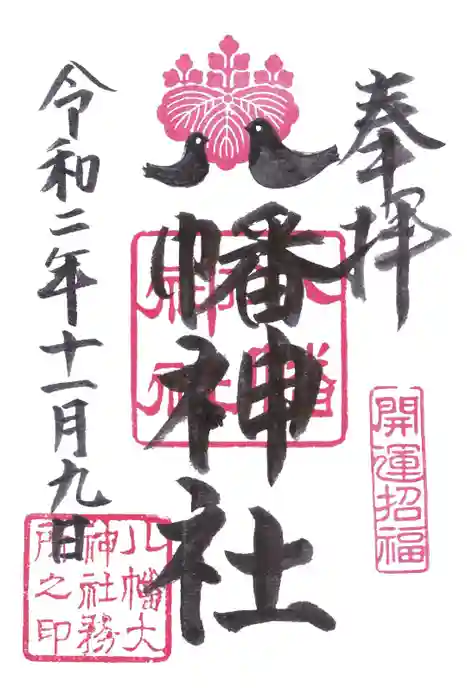 奉拝
開運招福
八幡神社
八幡神社
令和二年十一月九日
八幡大
神社務
所之印